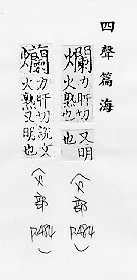 四聲篇海
爛力旰切火熟也又明也(火部 P.484)
爤力旰切說文火熟又明也(火部 P.484)